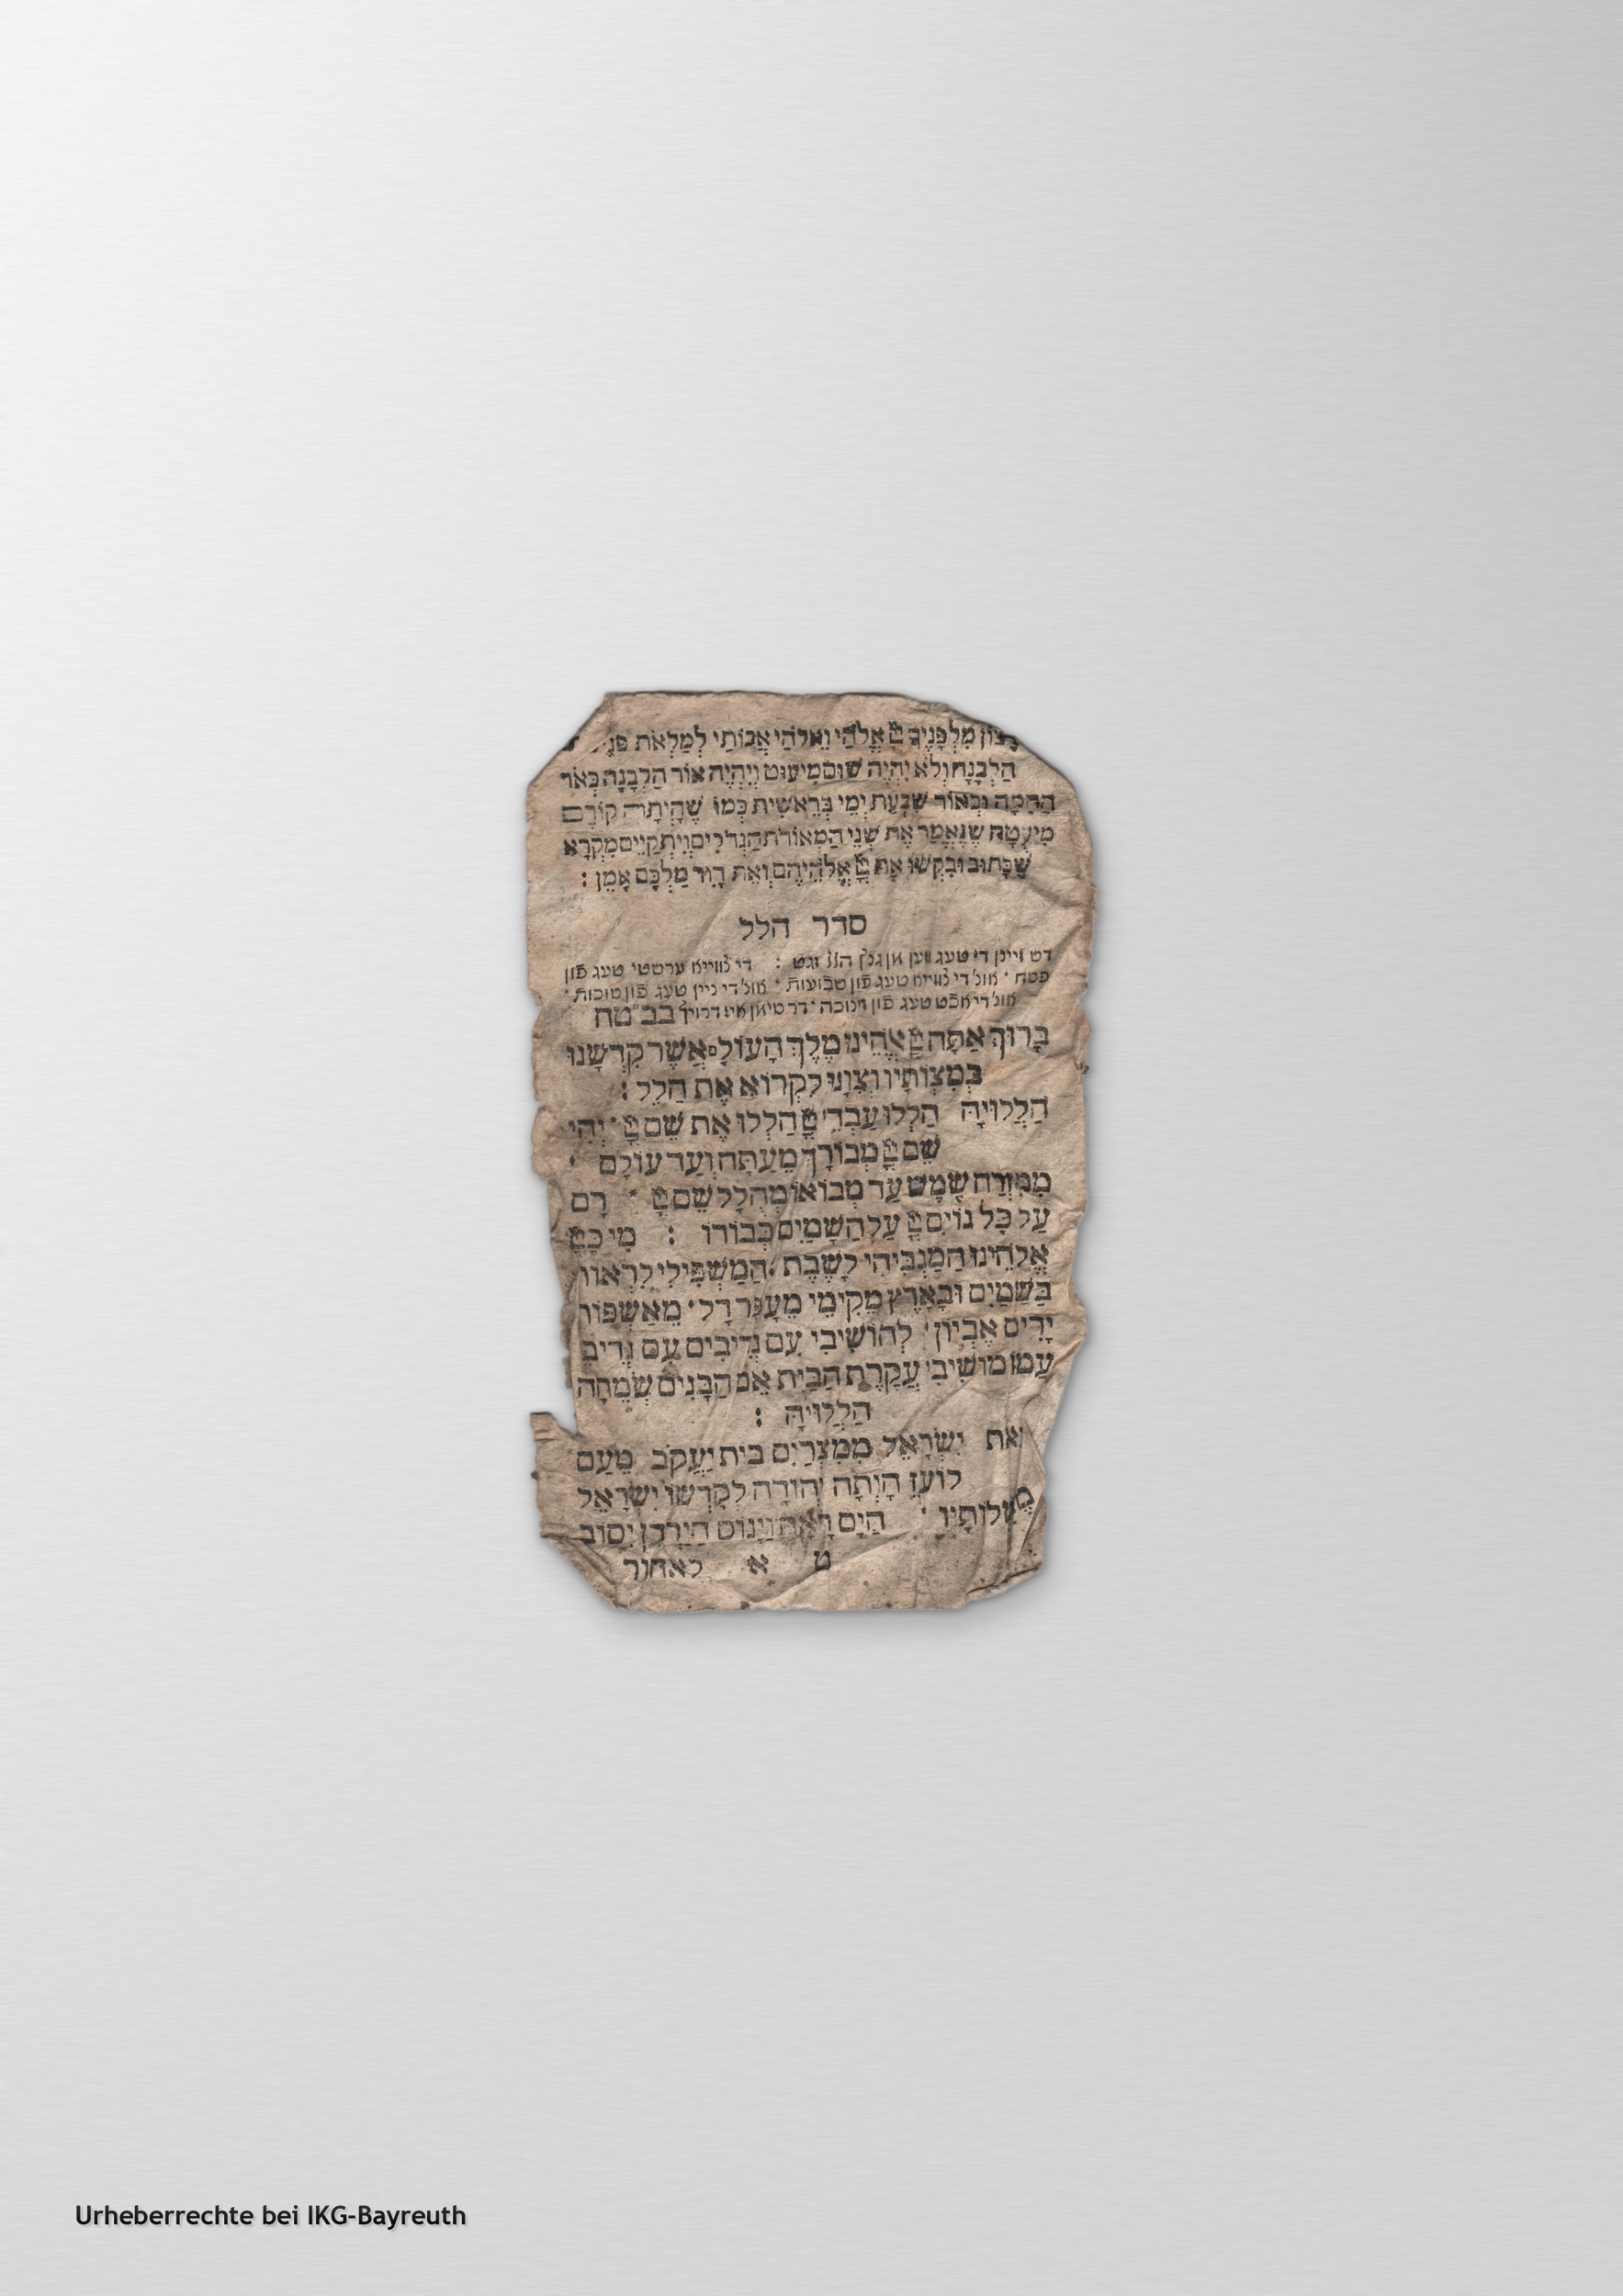 רָצוֹן מִלְּפָנֶיךָ יְיָ אֱלֹהַי וֵאלֹהֵי אֲבוֹתַי לְמַלְאֹת
הַלְּבָנָה וְלֹא יִהְיֶה שׁוּם מִיעוּט וְיִהְיֶה אוֹר הַלְּבָנָה כְּאוֹר
הַחַמָּה וּכְאוֹר שִׁבְעַת יְמֵי בְּרֵאשִׁית כְּמוֹ שֶׁהָיְתָה קוֹדֶם
מִיעֻטָהּ שֶׁנֶּאֱמַר אֶת שְׁנֵי הַמְּאוֹרֹת הַגְּדֹלִים וְיִתְקַיֵּים מִקְרָא
שֶׁכָּתוּב וּבִקְשׁוּ אֶת יְיָ אֱלֹהֵיהֶם וְאֵת דָּוִד מַלְכָּם אָמֵן :
סדר הלל
דש זיינן די טעג ווען מן גנץ הלל זגט : די צווייא ערשטי טעג פֿון
פסח · אונ' די צווייא טעג פֿון שבֿועות · אונ' די ניין טעג פֿון סוכות ·
אונ' די אכֿט טעג פֿון חנוכה · דר סימן איז דרויף בב"טח
בָּרוּךְ אַתָּה יְיָ אֱלֹהֵינוּ מֶלֶךְ הָעוֹלָם אֲשֶׁר קִדְּשָׁנוּ
בְּמִצְוֹתָיו וְצִוָּנוּ לִקְרוֹא אֶת הַלֵּל :
הַלְלוּיָהּ הַלְלוּ עַבְדֵי יְיָ הַלְלוּ אֶת שֵׁם יְיָ · יְהִי
שֵׁם יְיָ מְבוֹרָךְ מֵעַתָּה וְעַד עוֹלָם ·
מִמִּזְרַח שֶׁמֶשׁ עַד מְבוֹאוֹ מְהֻלָּל שֵׁם יְיָ · רָם
עַל כָּל גּוֹיִם יְיָ עַל הַשָּׁמַיִם כְּבוֹדוֹ : מִי כַּיְיָ
אֱלֹהֵינוּ הַמַּגְבִּיהִי לָשָׁבֶת · הַמַּשְׁפִּילִי לִרְאוֹת
בַּשָּׁמַיִם וּבָאָרֶץ מְקִימִי מֵעָפָר דָּל · מֵאַשְׁפּוֹת
יָרִים אֶבְיוֹן · לְהוֹשִׁיבִי עִם נְדִיבִים עִם נְדִיבֵי
עַמּוֹ מוֹשִׁיבִי עֲקֶרֶת הַבַּיִת אֵם הַבָּנִים שְׂמֵחָה
הַלְלוּיָהּ :
צֵאת יִשְׂרָאֵל מִמִּצְרַיִם בֵּית יַעֲקֹב מֵעַם
לוֹעֵז הָיְתָה יְהוּדָה לְקָדְשׁוֹ יִשְׂרָאֵל
מַמְשְׁלוֹתָיו · הַיָּם רָאָה וַיָּנוֹס הַיַּרְדֵּן יִסּוֹב
ט א לאחור
Urheberrechte bei IKG-Bayreuth